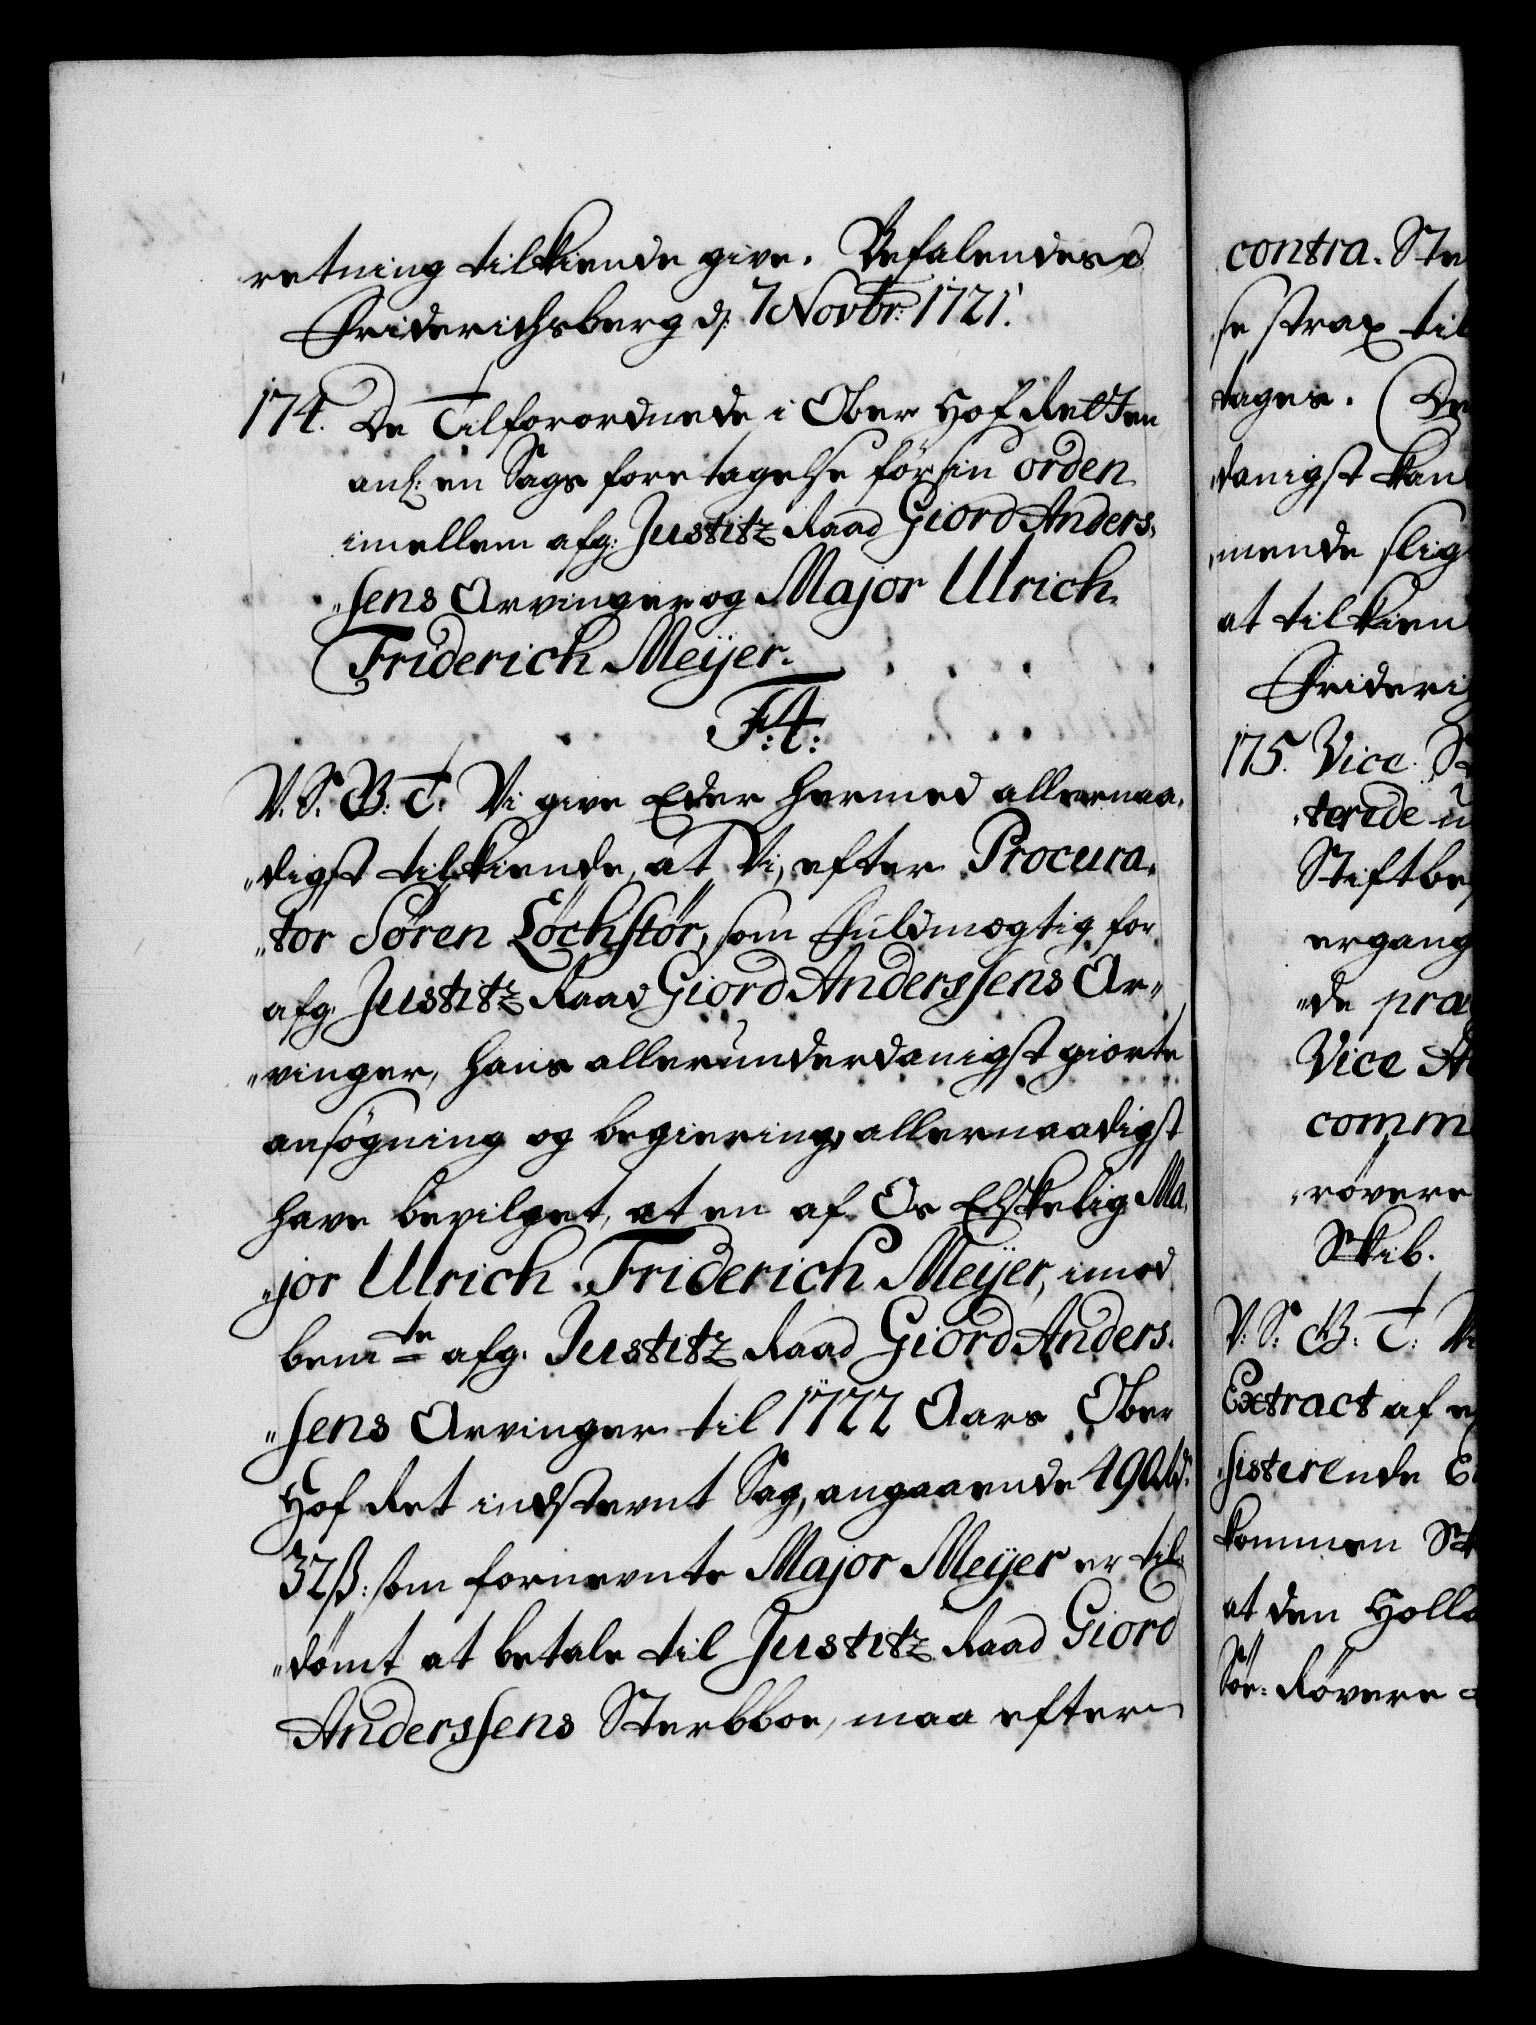 retning tilkiende give. Befalendes
Friderichsberg d: 7 Novbr: 1721.
174. De Tilforordnede i Ober Hof Retten
anl: en Sags foretagelse før sin orden
imellem afg: Justitz Raad Giord Anders„
„sens Arvinger og Major Ulrich
Friderich Meÿer.
F: 4:
V. S. B: T: Vi give Eder hermed allernaa„
„digst tilkiende, at Vi, efter Procura„
„tor Søren Løchstør, som fuldmægtig for
afg: Justitz Raad Giord Anderssens Ar„
„vinger, hans allerunderdanigst giorte
ansøgning og begiering, allernaadigst
have bevilget, at en af Os Elskelig Ma„
„jor Ulrich Friderich Meÿer, imod
bemte afg: Justitz Raad Giord Anders„
„sens Arvinger til 1722 Aars Ober
Hof Ret indstevnt Sag, angaaende 490 Rd:
32 ß: som fornevnte Major Meÿer er til„
„dømt at betale til Justitz Raad Giord
Anderssens Sterbboe, maa efter
contra. Ste
se strax til
tages. (De
danigst kan
„mende slig
at tilkien
Frideri
175. Vice. St
„terede u
Stiftbe
ergang
„de præ
Vice A
comm
„røvere
Skib.
V: S: B: T: V
Extract af
„sisterende E
kommen Sk
at den Holla
Søe-Røvere